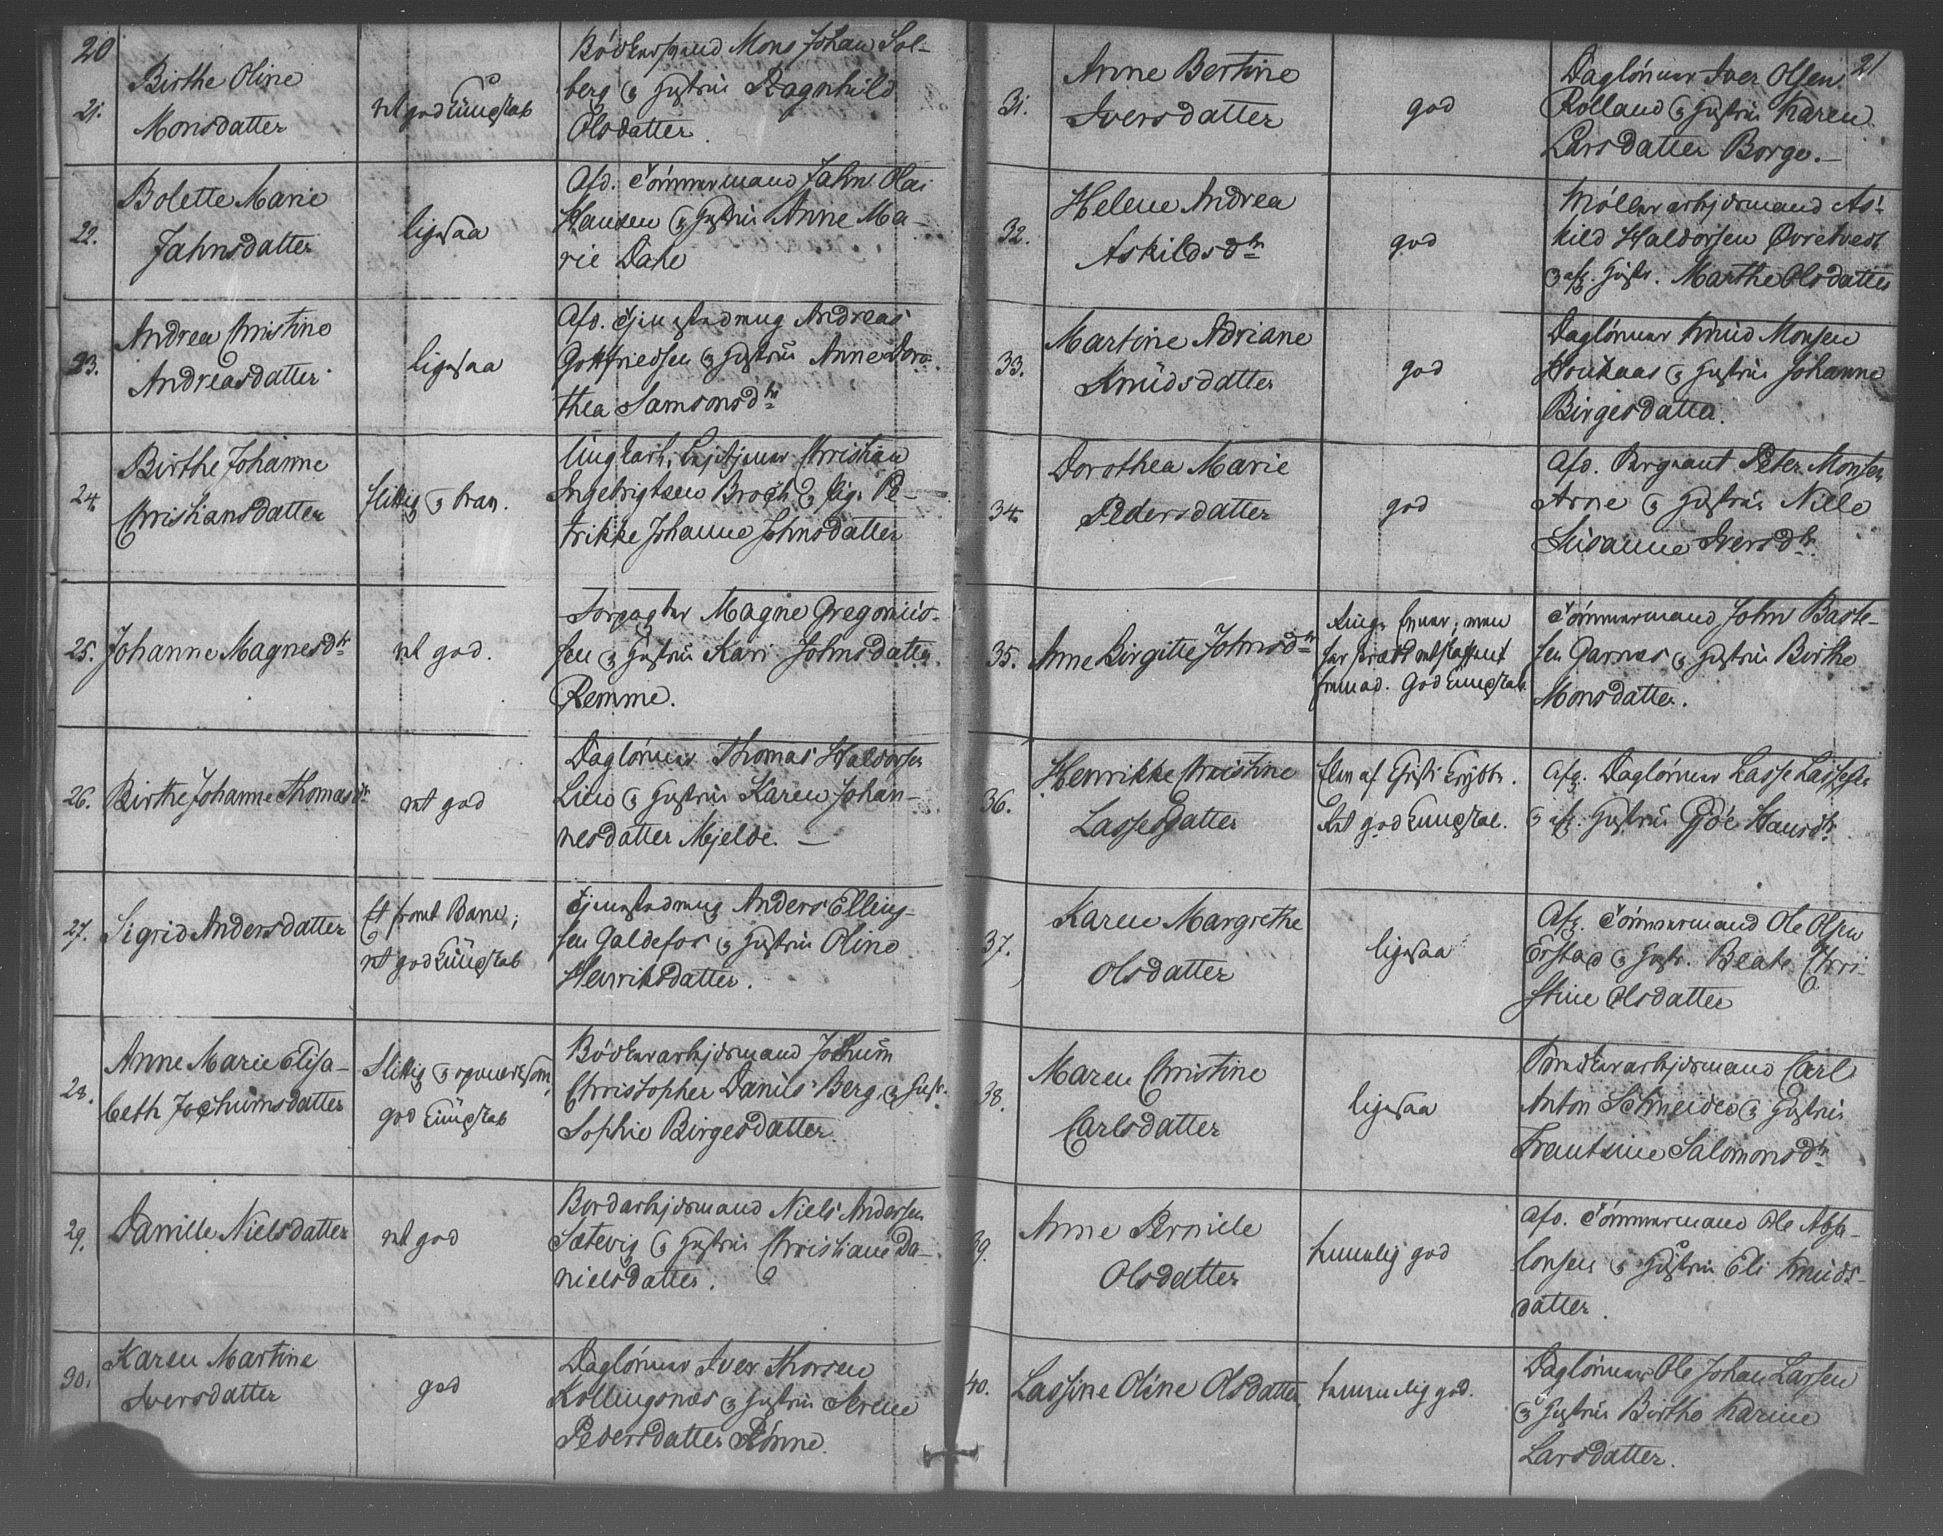 20
21.
Birthe Oline
Monsdatter
Bødkersvend Mons Johan Sol-
berg & Hustru Ragnhild
Olsdatter
22.
Bolette Marie
Jahnsdatter
ligesaa
Afd. Tømmermand Jahn Olai
Hansen & Hustru Anne Ma-
rie Dahe
23.
Andrea Christine
Andreasdatter
ligesaa
Afd. Andreas
Gottfriedsen & Hustru Anne Doro-
thea Samsonsdtr
24.
Birthe Johanne
Christiansdatter
flittig & brav.
Ungkarl, Christian
Ingebrigtsen Broch & Pige Pe-
trikke Johanne Johnsdatter
25.
Johanne Magnesdtr
mt god.
Magne Gregorius-
sen & Hustru Kari Johnsdatter
Remme.
26.
Birthe Johanne Thomasdtr
mt god
Daglønner Thomas Haldorsen
Lien & Hustru Karen Johan-
nesdatter Mjelde. —
27.
Sigrid Andersdatter
Et fromt Barn;
mt god Kundskab
Anders Elling-
sen Galdefos & Hustru Oline
Henriksdatter.
28.
Anne Marie Elisa-
beth Jochumsdatter
flittig & opmærksom
god Kundskab
Bødkerarbejdsmand Jochum
Christopher Daniel Berg & Hustr.
Sophie Birgesdatter
29.
Danille Nielsdatter
mt god
Bordarbejdsmand Niels Andersen
Sætevig & Hustru Christiane Da-
nielsdatter.
30.
Karen Martine
Iversdatter
god
Daglønner Iver Thorsen
Kollingsnæs & Hustru Serene
Pedersdatter Rønne.
21
31.
Anne Bertine
Iversdatter
god
Daglønner Iver Olsen
Rolland & Hustru Karen
Larsdatter Borge. —
32.
Helene Andrea
Askildsdtr
god
Møllerarbejdsmand As-
kild Haldorsen Øvretvedt
& afg. Hustr. Marthe Olsdatter
33.
Martine Adriane
Knudsdatter
god
Daglønner Knud Monsen
Houkaas & Hustru Johanne
Birgesdatter.
34.
Dorothea Marie
Pedersdatter
god
Afd. Sergeant Peter Monsen
Arne & Hustru Nille
Susanne Iversdtr.
35.
Anne Birgitte Johnsdtr
men
har
fremad. God Kundskab
Tømmermand John Baste-
sen Garnæs & Hustru Birthe
Monsdatter.
36.
Henrikke Christine
Lassesdatter
mt god Kundskab.
Afg. Daglønner Lasse Lassesen
& afg. Hustru Gjøe Hansdtr.
37.
Karen Margrethe
Olsdatter
ligesaa
Afg. Tømmermand Ole Olsen
Erstad & Hustr. Beate Chri-
stine Olsdatter
38.
Maren Christine
Carlsdatter
ligesaa
Carl
Anton Schneider & Hustru
Frantsine Salomonsdtr
39.
Anne Pernille
Olsdatter
temmelig god
Afd. Tømmermand Ole Absa-
lonsen & Hustru Eli Knuds-
datter.
40.
Lassine Oline Olsdatter
temmelig god.
Daglønner Ole Johan Larsen
& Hustru Birthe Karine
Larsdatter.